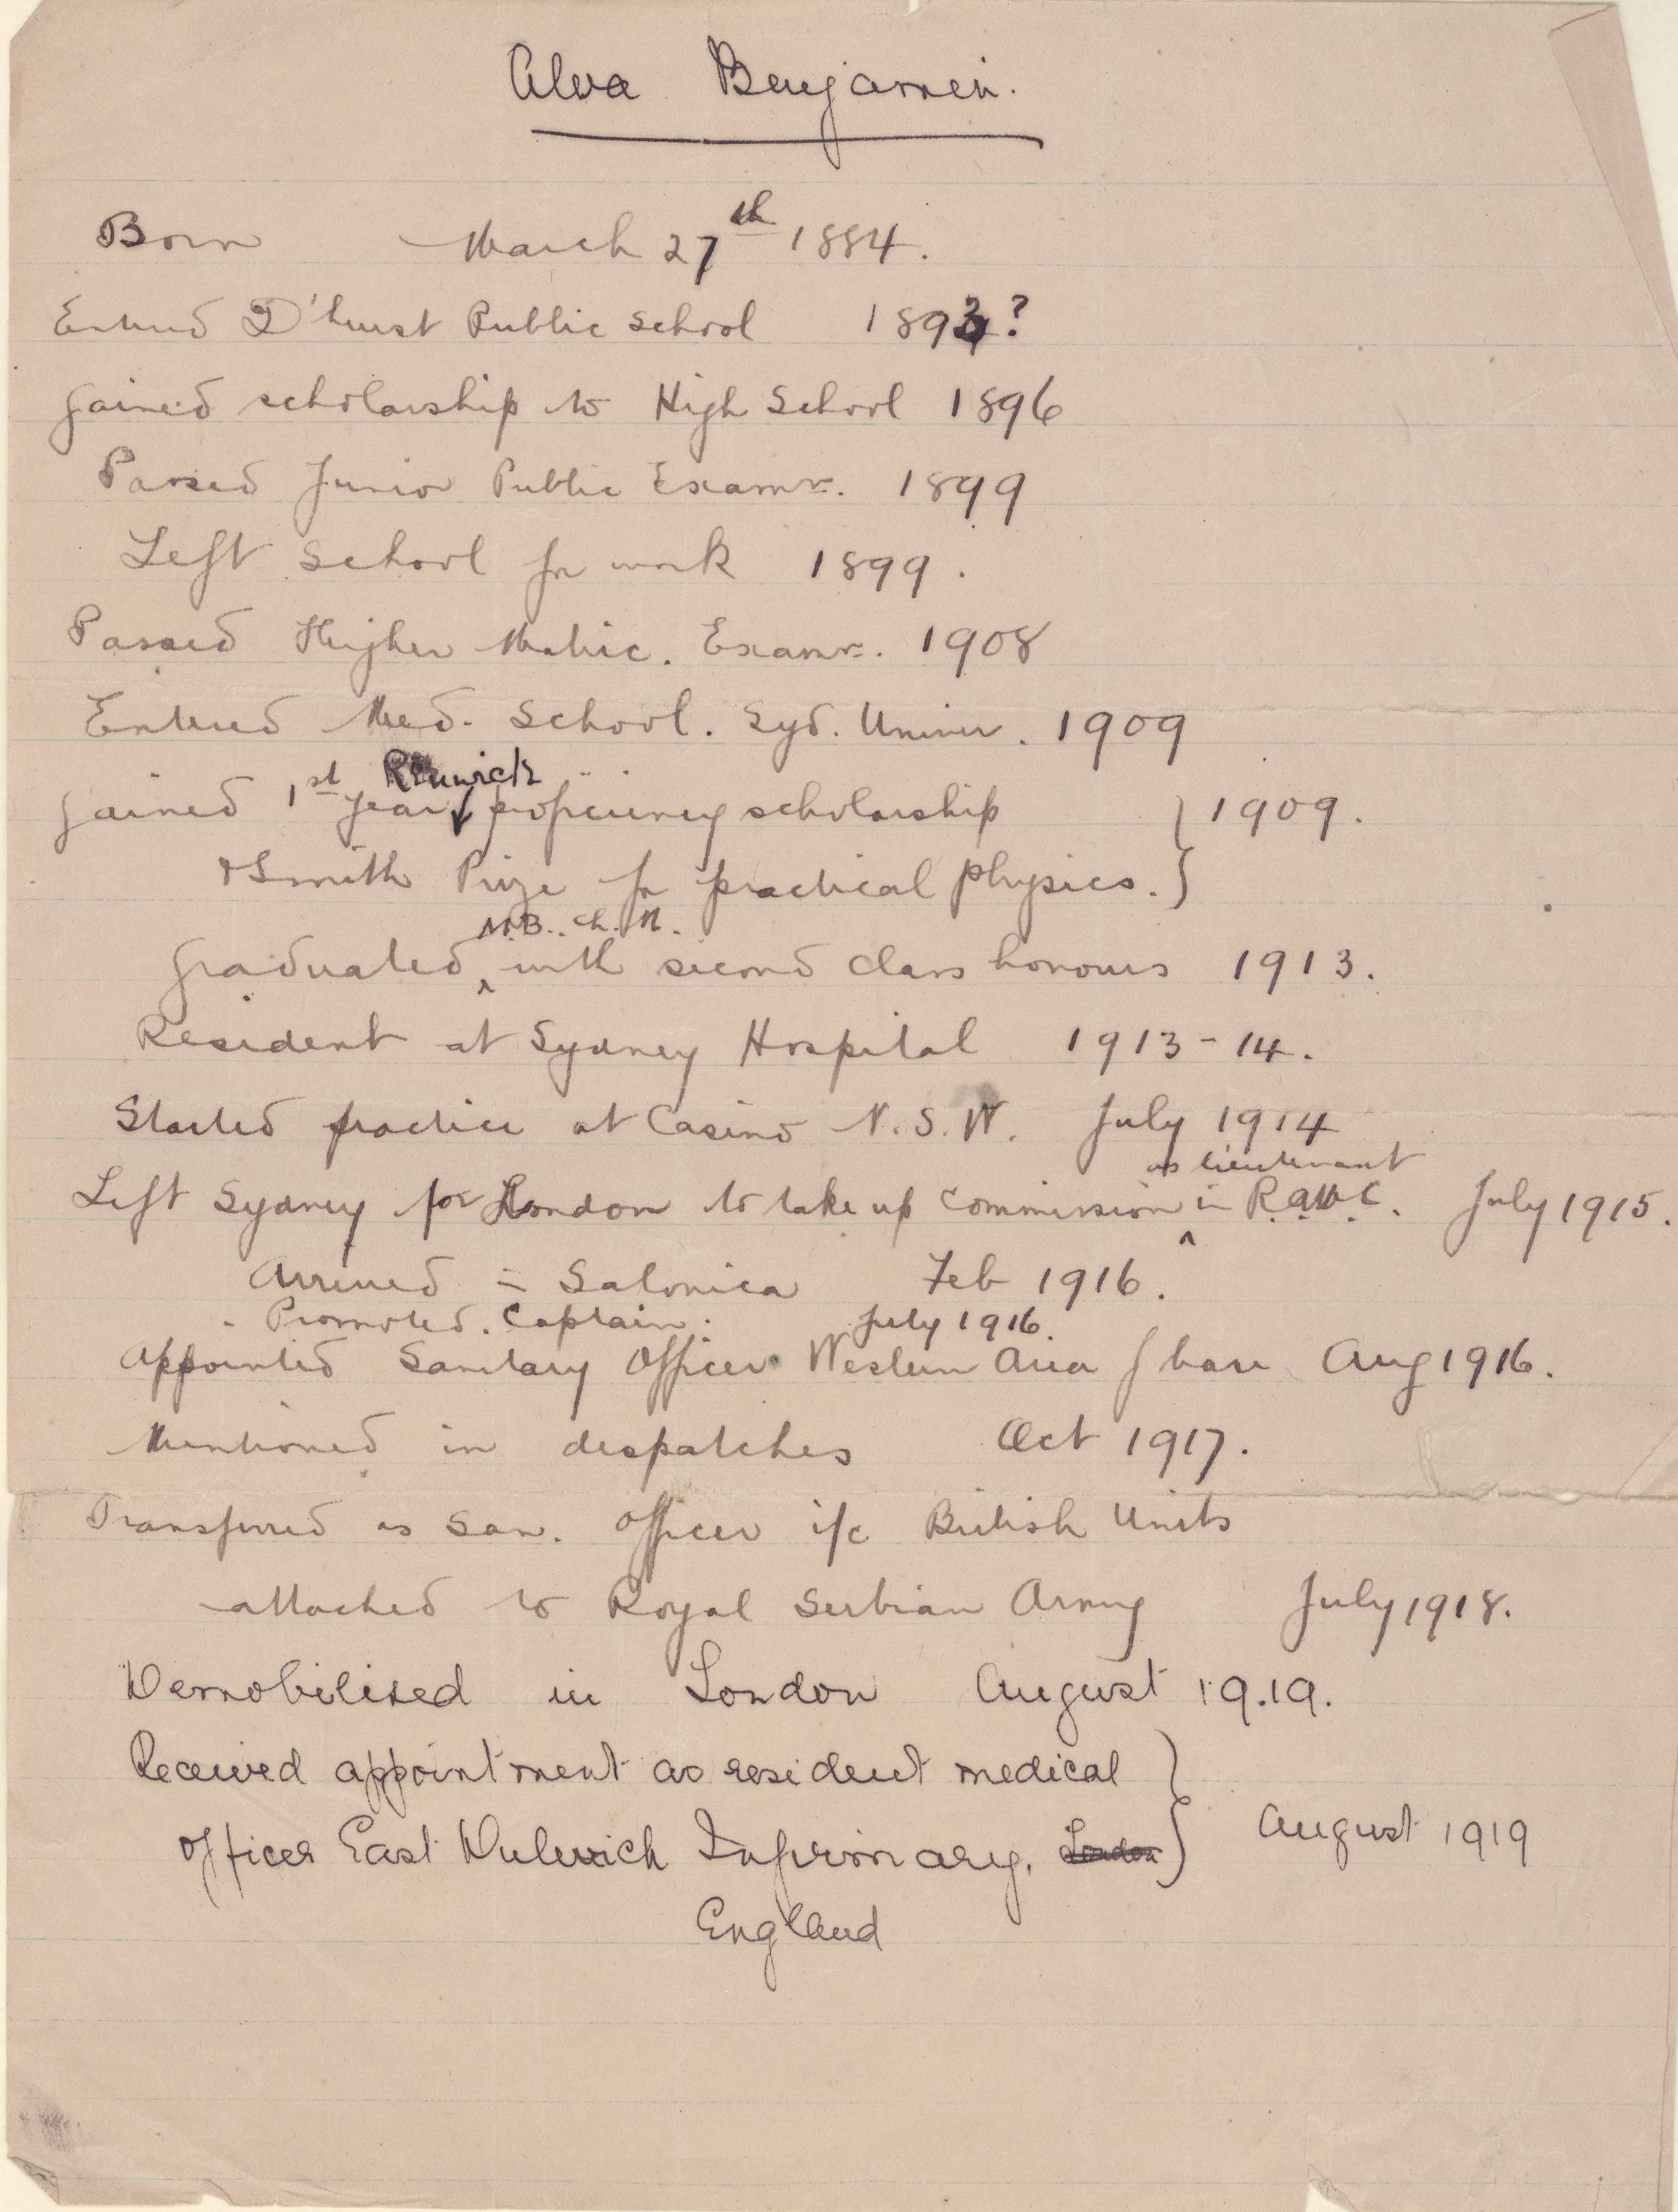 Alva Benjamin.
Born March 27th 1884.
Entered D'hurst Public School 1893?
Gained scholarship to High School 1896
Passed Junior Public Examn. 1899
Left School for work 1899.
Passed Higher Matric. Examn. 1908
Entered Med. School. Syd. Univer. 1909
Renwick
Gained 1st year proficiency scholarship } 1909.
& Smith Prize for practical physics. }
M.B. Ch. M.
Graduated ^ with second class honours 1913.
Resident at Sydney Hospital 1913-14.
Started practice at Casino N.S.W. July 1914
as lieutenant
Left Sydney for London to take up commission ^ in R.A.M.C. July 1915.
Arrived in Salonica Feb 1916.
Promoted. Captain. July 1916.
Appointed Sanitary Officer Western Area base Aug 1916.
Mentioned in despatches Oct 1917.
Transferred as San. Officer i/c British Units
attached to Royal Serbian Army July 1918.
Demobilised in London August 19.19.
Received appointment as resident medical }
officer East Dulwich Infirmary, London } August 1919
England